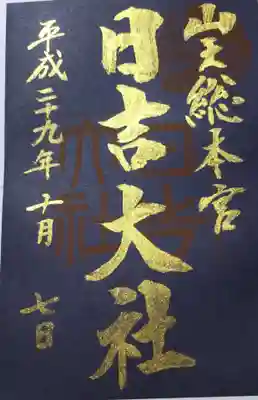 山王総本宮
日吉大社
平成二十九年 十月 七日
日吉
大社